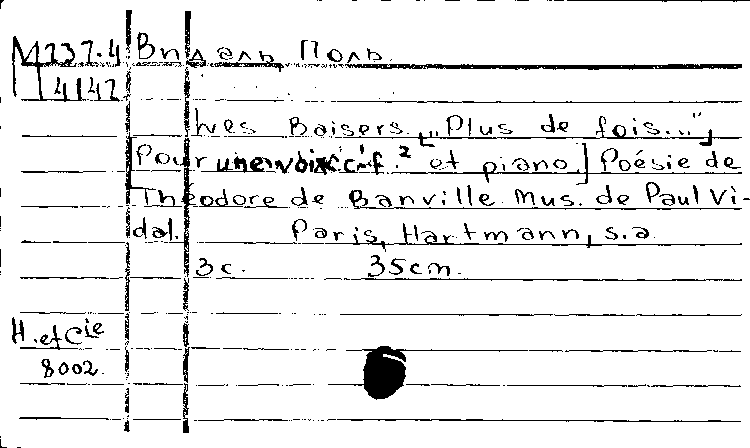 М237.4 Видаль, Поль.
4142
Les Baisers. [„Plus de fois..."]
[Pour une voix c¹-f.² et piano.] Poésie de
Théodore de Banville. Mus. de Paul Vi-
dal. Paris, Hartmann, s.a
3c. 35cm.
H. et Cie
8002.